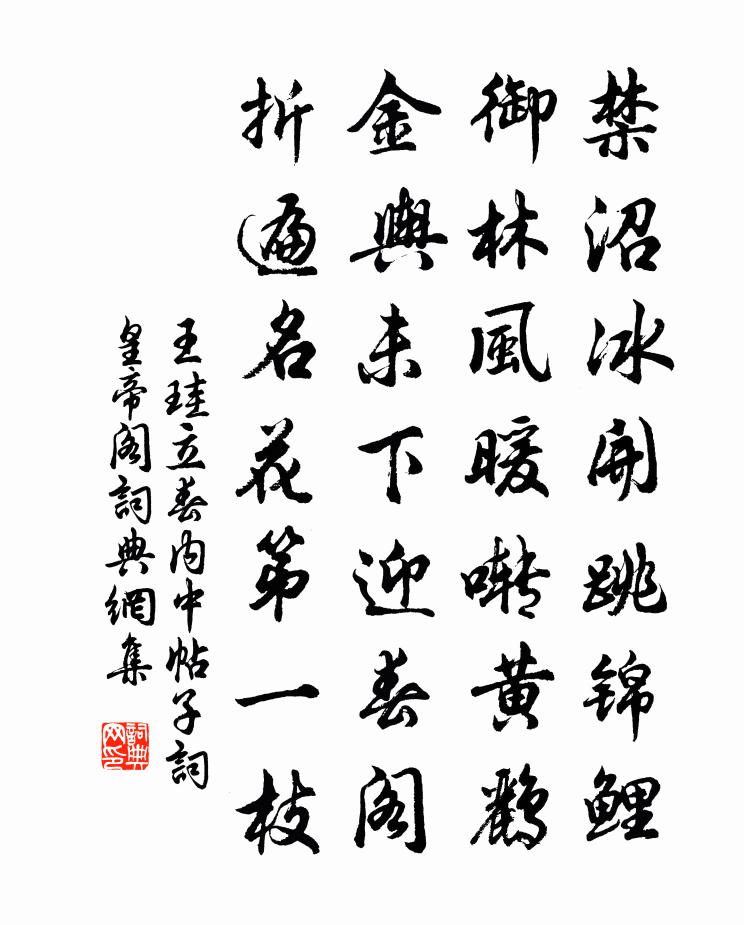 禁沼冰開跳锦鲤
御林風暖囀黄鸝
金輿未下迎春阁
折遍名花第一枝
王珪立春内中帖子詞
皇帝阁詞典網集
詞典网印